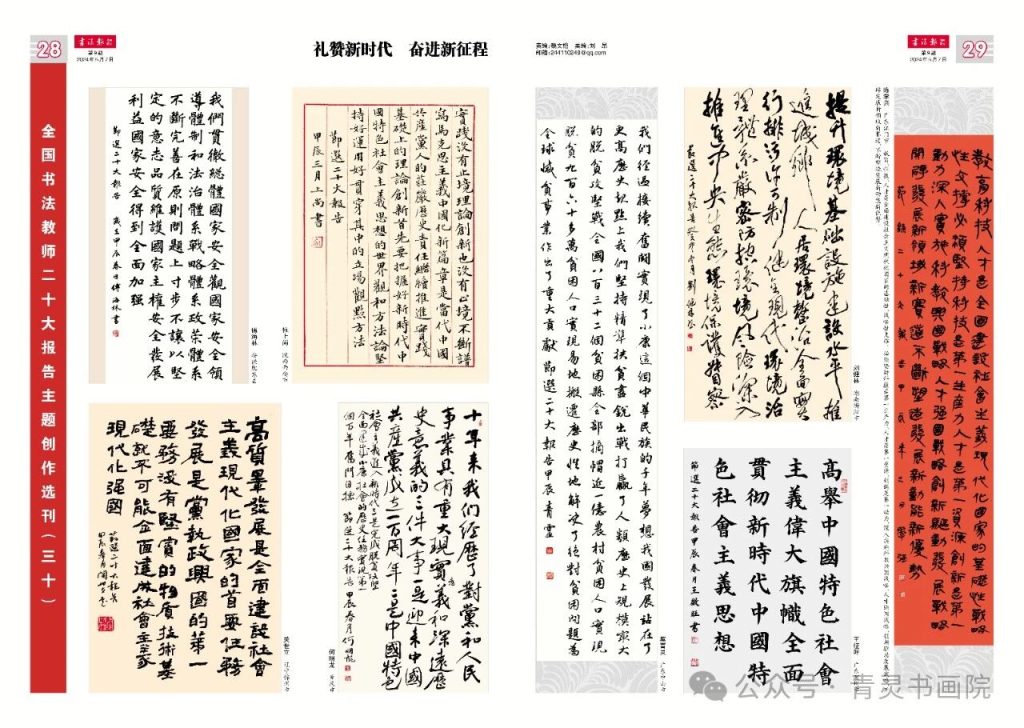 28
书法报
第9期
2024年5月7日
礼赞新时代 奋进新征程
书法报
第9期
2024年5月7日
29
全国书法教师二十大报告主题创作选刊（三十）
我們貫徹總體國家安全觀國家安全領
導體制和法治體系戰略體系政策體系
不斷完善在原則問題上寸步不讓以堅
定的意志品質維護國家主權安全發展
利益國家安全得到全面加强
節選二十大報告
實踐沒有止境理論創新也沒有止境不斷譜
寫馬克思主義中國化新篇章是當代中國
共產黨人的莊嚴歷史責任繼續推進實踐
基礎上的理論創新首先要把握好新時代中
國特色社會主義思想的世界觀和方法論堅
持好運用好貫穿其中的立場觀點方法
節選二十大報告
甲辰三月上尚書
高質量發展是全面建設社會
主義現代化國家的首要任務
發展是黨執政興國的第一
要務沒有堅實的物質技術基
礎就不可能全面建成社會主義
現代化强國
十年來我们經歷了對黨和人民
事業具有重大現實意義和深遠歷
史意義的三件大事一是迎來中國
共產黨成立一百周年二是中國特色
社會主義進入新時代三是完成脱貧攻堅
全面建成小康社會的歷史任務實現第一
個百年奮鬥目標 節選二十大報告
我们經過接續奮鬥實現了小康這個中華民族的千年夢想我國發展站在了
更高歷史起點上我們堅持精準扶貧盡銳出戰打贏了人類歷史上規模最大
的脱貧攻堅戰全國八百三十二個貧困縣全部摘帽近一億農村貧困人口實現
脱貧九百六十多萬貧困人口實現易地搬遷歷史性地解決了絕對貧困問題爲
全球減貧事業作出了重大貢獻 節選二十大報告甲辰青雲
提升環境基础設施建設水平推
進城鄉人居環境整治全面實
行排污许可制健全現代環境治
理體系嚴密防控環境風險深入
推進中央生態環境保護督察
高舉中國特色社會
主義偉大旗幟全面
貫彻新時代中國特
色社會主義思想
節選二十大報告甲辰春月王敏旺書
教育科技人才是全面建設社會主義現代化國家的基礎性戰略
性支撐必須堅持科技是第一生產力人才是第一資源創新是第一
動力深入實施科教興國戰略人才强國戰略創新驅動發展戰略
開辟發展新領域新賽道不斷塑造發展新動能新優勢
公众号·青灵书画院